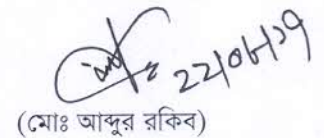 ২২/০৮/১৭
(মোঃ আব্দুর রকিব)